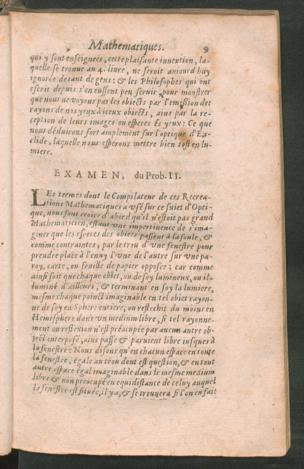 Mathematiques. 9
qui y sont enseignees, cette plaisante invention, la-
quelle se trouue au 4. liure, ne seroit auiourd'huy
ignorée de tant de gens: & les Philosophes qui ont
escrit depuis s'en fussent peu seruir, pour monstrer
que nous ne voyons pas les obiects par l'emission des
rayons de nos yeux à iceux obiects, ains par la re-
ception de leurs images ou especes és yeux: Ce que
nous déduirons fort amplement sur l'optique d'Eu-
clide, laquelle nous esperons mettre bien tost en lu-
miere.
EXAMEN, du Prob. II.
LEs termes dont le Compilateur de ces Recrea-
tions Mathematiques a vsé sur ce suiet d'Opti-
que, nous font croire d'abord qu'il n'estoit pas grand
Mathematicien, estant vne impertinence de s'ima-
giner que les especes des obiets passent à la foule, &
comme contraintes, par le trou d'vne fenestre pour
prendre place à l'enuy l'vne de l'autre sur vne pa-
roy, carte, ou feuille de papier opposee; car comme
ainsi soit que chaque obiet, ou de soy lumineux, ou il-
luminé d'ailleurs, & terminant en soy la lumiere,
mesme chaque poinct imaginable en tel obiet rayon-
ne de soy en Sphere entiere, ou restechit du moins en
Hemisphere dans vn medium libre, si tel rayonne-
ment ou reflexion n'est préoccupée par aucun autre ob-
iect interposé, ains passe & paruient libre iusques à
la fenestre: Nous disons qu'en chacun espace en toute
la fenestre, égale au trou dont est question, & en tout
autre espace égal imaginable dans le mesme medium
libre & non preoccupé en equidistance de celuy auquel
la fenestre est située, il y a, & se trouuera si l'on en fait